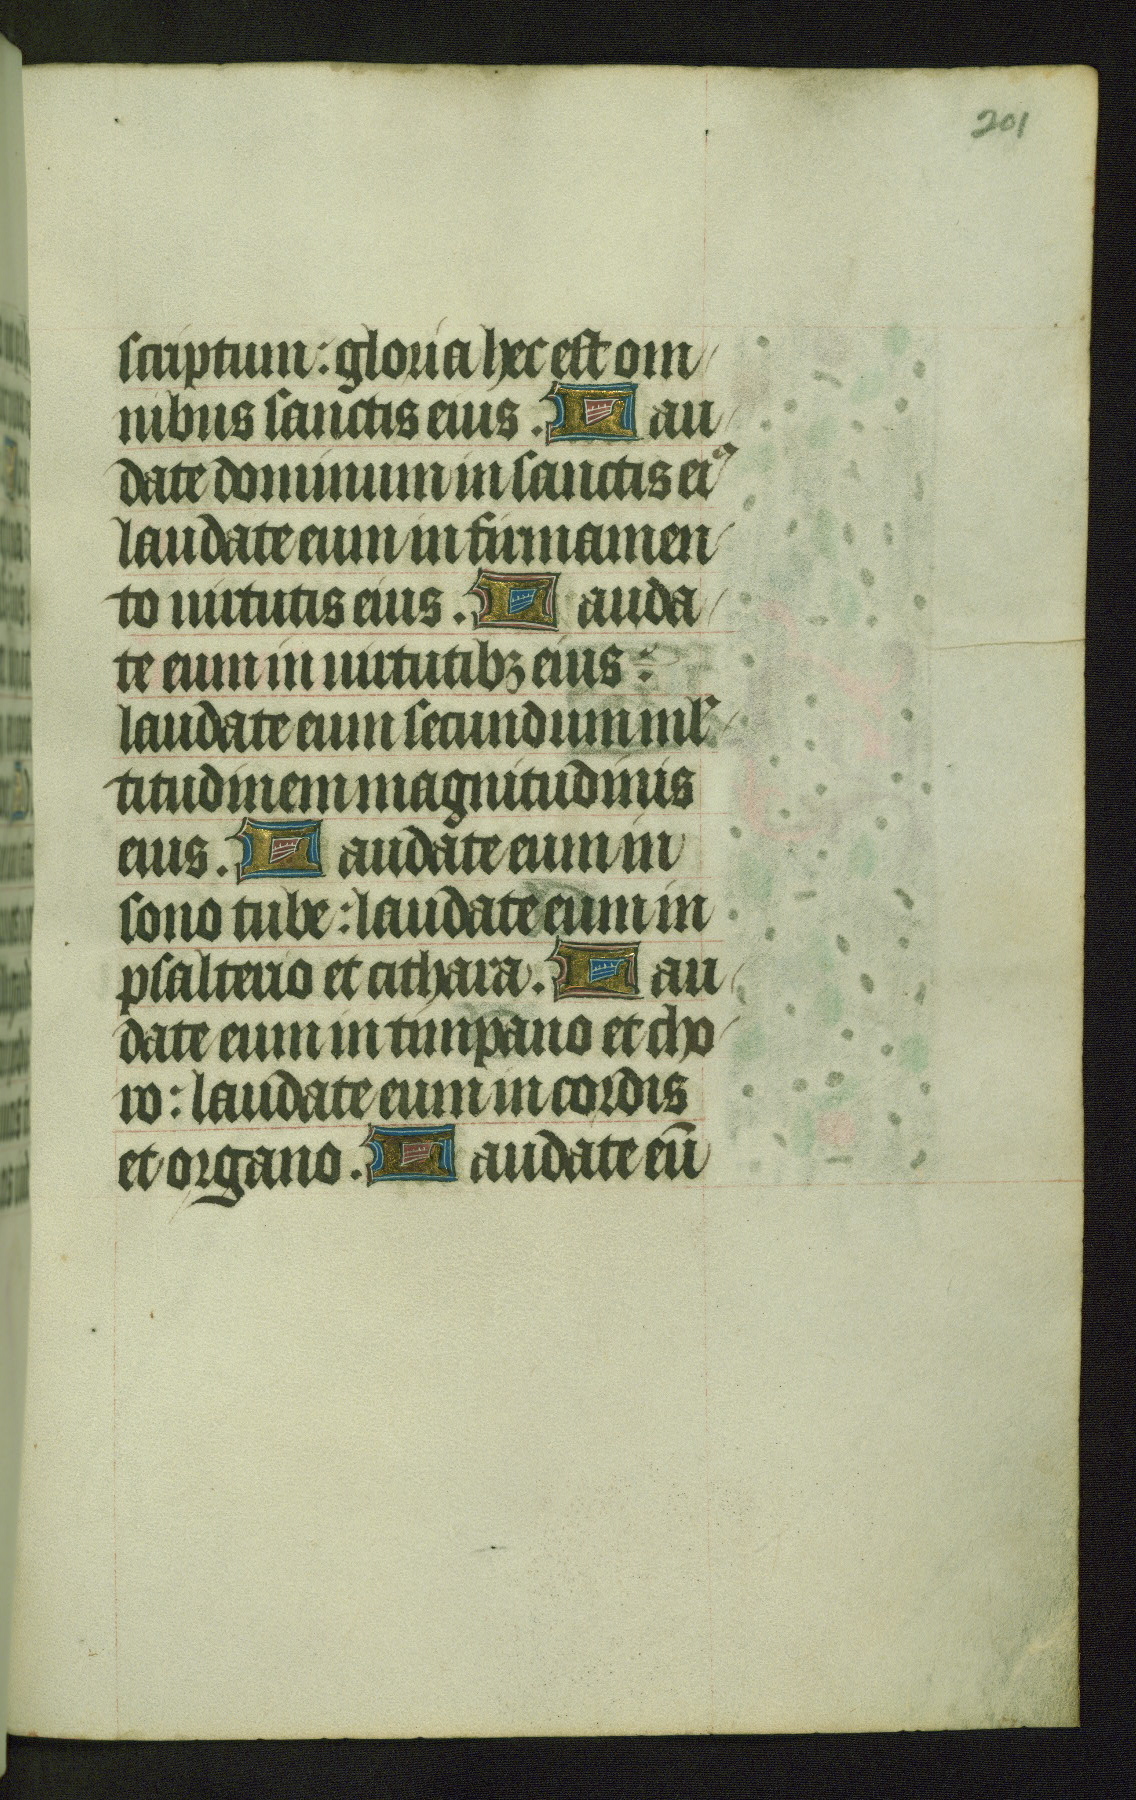 201
scriptum: gloria hec est om
nibus sanctis eius. Lau
date dominum in sanctis eiꝰ
laudate eum in firmamen
to uirtutis eius. Lauda
te eum in uirtutibꝫ eius:
laudate eum secundum ml'
titudinem magnitudinis
eius. Laudate eum in
sono tube: laudate eum in
psalterio et cithara. Lau
date eum in timpano et cho
ro: laudate eum in cordis
et organo. Laudate eū